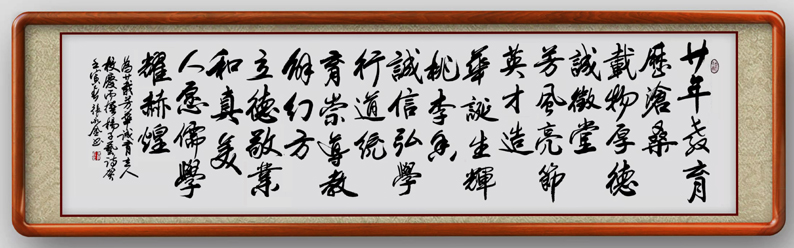 廿年教育
歷滄桑
載物厚德
誠徵堂
芳風亮節
英才造
華誕生輝
桃李香
誠信弘學
行道統
育崇尊教
解幻方
立德敬業
和真美
人愿儒學
耀赫煌
為廿載芳華誠育立人
校慶而 楊子藝詩賀
壬寅 張小金書